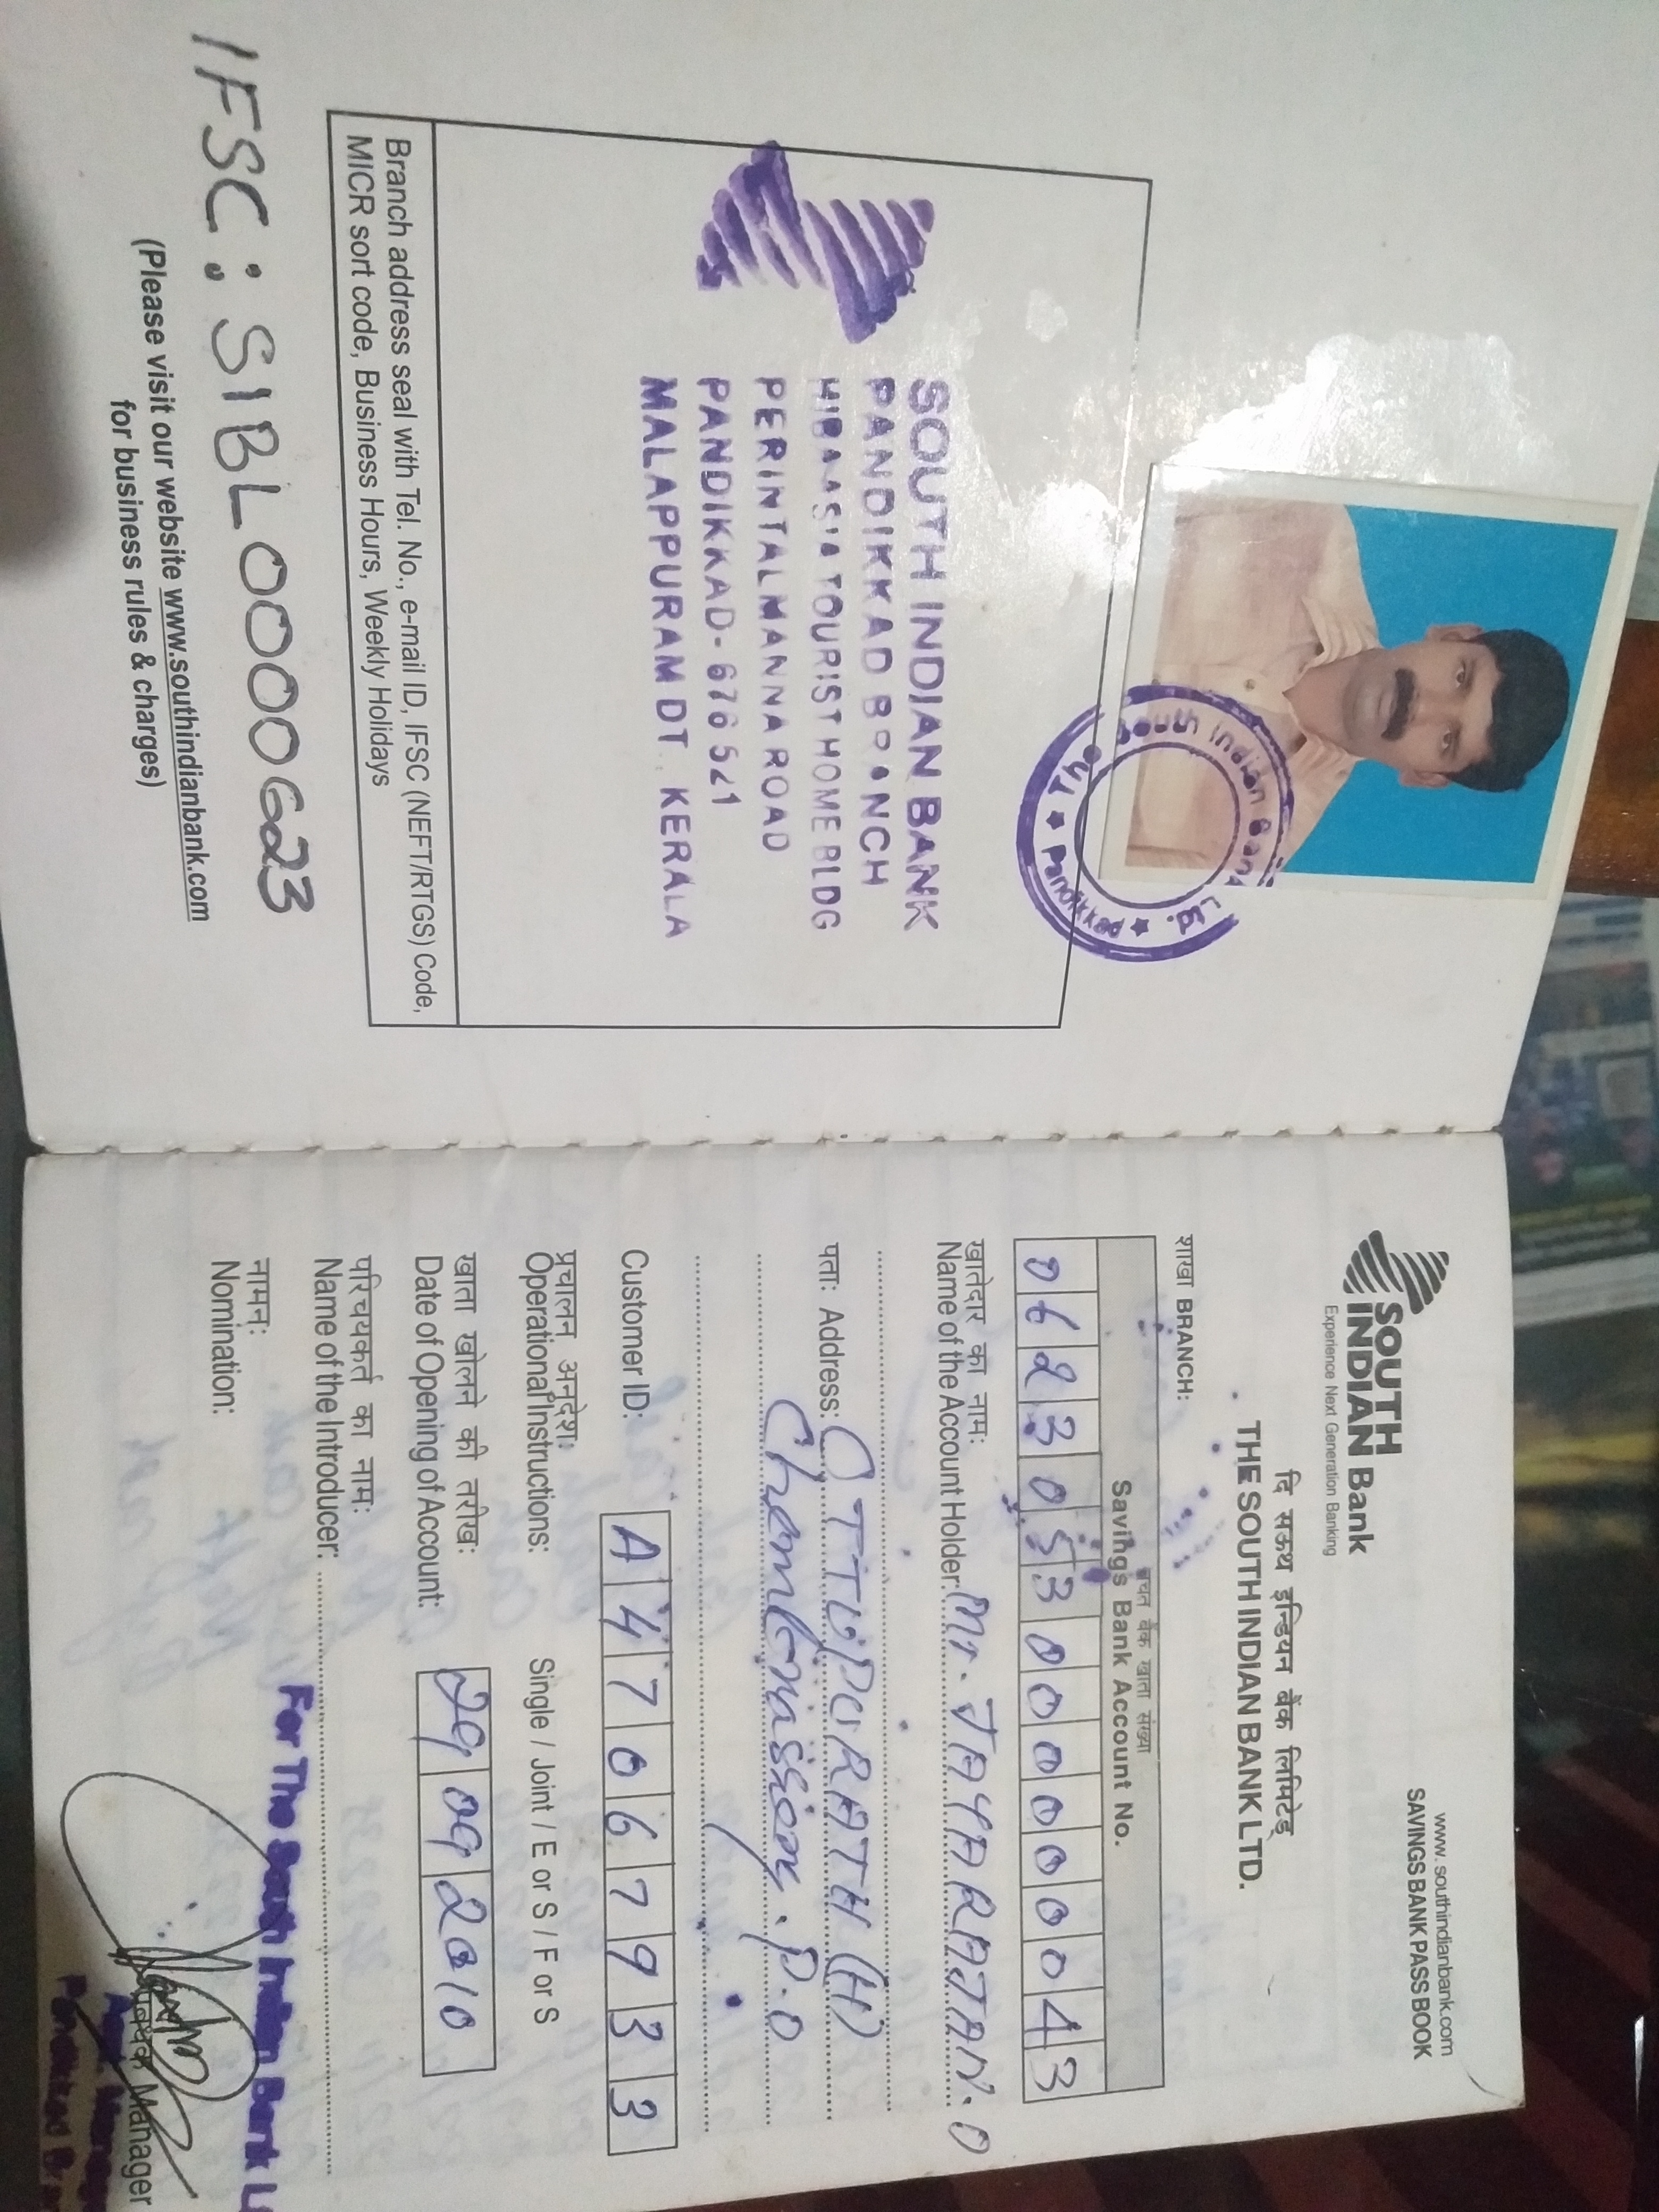 SOUTH INDIAN BANK
PANDIKKAD BRANCH
HIBA ASIA TOURIST HOME BLDG
PERINTALMANNA ROAD
PANDIKKAD - 676 521
MALAPPURAM DT. KERALA
South Indian Bank
Branch address seal with Tel. No., e-mail ID, IFSC (NEFT/RTGS) Code,
MICR sort code, Business Hours, Weekly Holidays
IFSC : SIBL0000623
(Please visit our website www.southindianbank.com
for business rules & charges)
www. southindianbank.com
SAVINGS BANK PASS BOOK
SOUTH
INDIAN Bank
Experience Next Generation Banking
दि सऊथ इन्डियन बैंक लिमिटेड्
THE SOUTH INDIAN BANK LTD.
शाखा BRANCH:
बचत बैंक खाता संख्या
Savings Bank Account No.
0623053000000043
खातेदार का नाम:
Name of the Account Holder: Mr. JAYARAJAN. O
पता: Address: OTTUPURATH (H)
Chembrassery. P.O
Customer ID: A47067933
प्रचालन अनुदेश:
Operational Instructions: Single / Joint / E or S / F or S
खाता खोलने की तरीख:
Date of Opening of Account: 29 09 2010
परिचयकर्त का नाम:
Name of the Introducer:
नामन:
Nomination:
For The South Indian Bank L
Manager